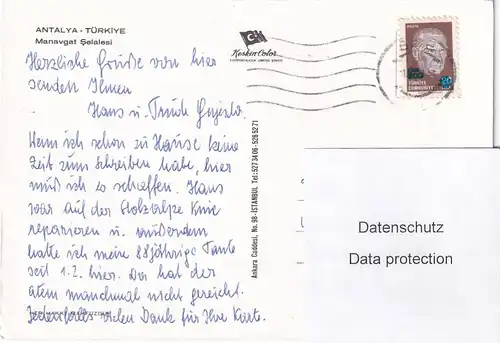 ANTALYA - TÜRKİYE
Manavgat Şelalesi
Herzliche Grüße von hier
senden Ihnen
Hans u. Trude
Wenn ich schon zu Hause keine
Zeit zum Schreiben habe, hier
muß ich es schaffen. Hans
war auf der Stolzalpe Knie
reparieren u. außerdem
hatte ich meine 88jährige Tante
seit 1.2. hier. Da hat der
Atem manchmal nicht gereicht.
Jedenfalls vielen Dank für Ihre Karte.
Keskin Color
Ankara Caddesi, No. 98 - İSTANBUL Tel: 5273406-5265271
TÜRKİYE
CUMHURİYETİ
20
Datenschutz
Data protection